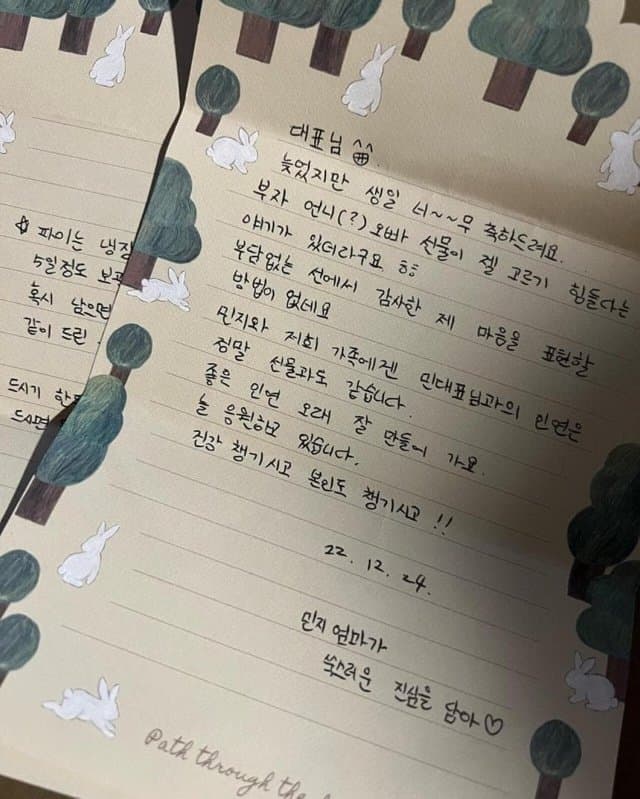 대표님
늦었지만 생일 너~~무 축하드려요.
부자 언니(?) 오빠 선물이 젤 고르기 힘들다는
얘기가 있더라구요 ㅎㅎ
부담없는 선에서 감사한 제 마음을 표현할
방법이 없네요
민지와 저희 가족에겐 민대표님과의 인연은
정말 선물과도 같습니다.
좋은 인연 오래 잘 만들어 가요.
늘 응원하고 있습니다.
건강 챙기시고 본인도 챙기시고 !!
22. 12. 24.
민지 엄마가
쑥스러운 진심을 담아♡
Path through the
파이는 냉장
5일정도 보관
혹시 남으면
같이 드린
드시기 한
드시면